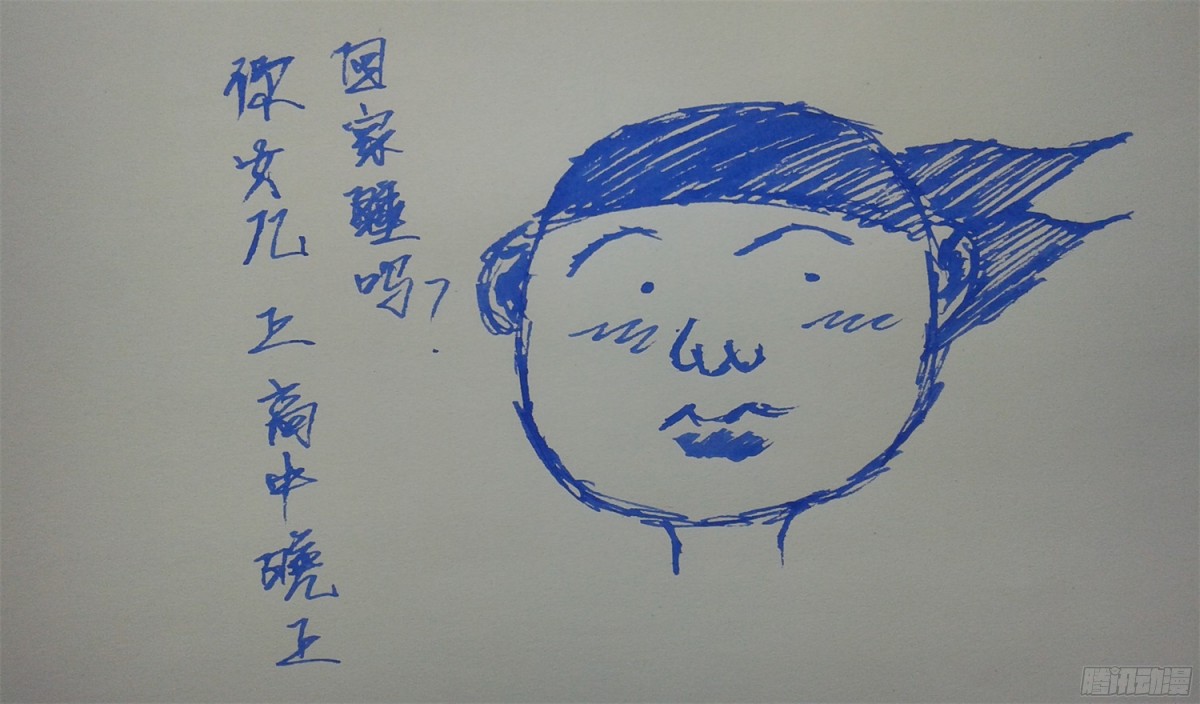 你女儿上高中晚上
回家睡吗?
腾讯动漫